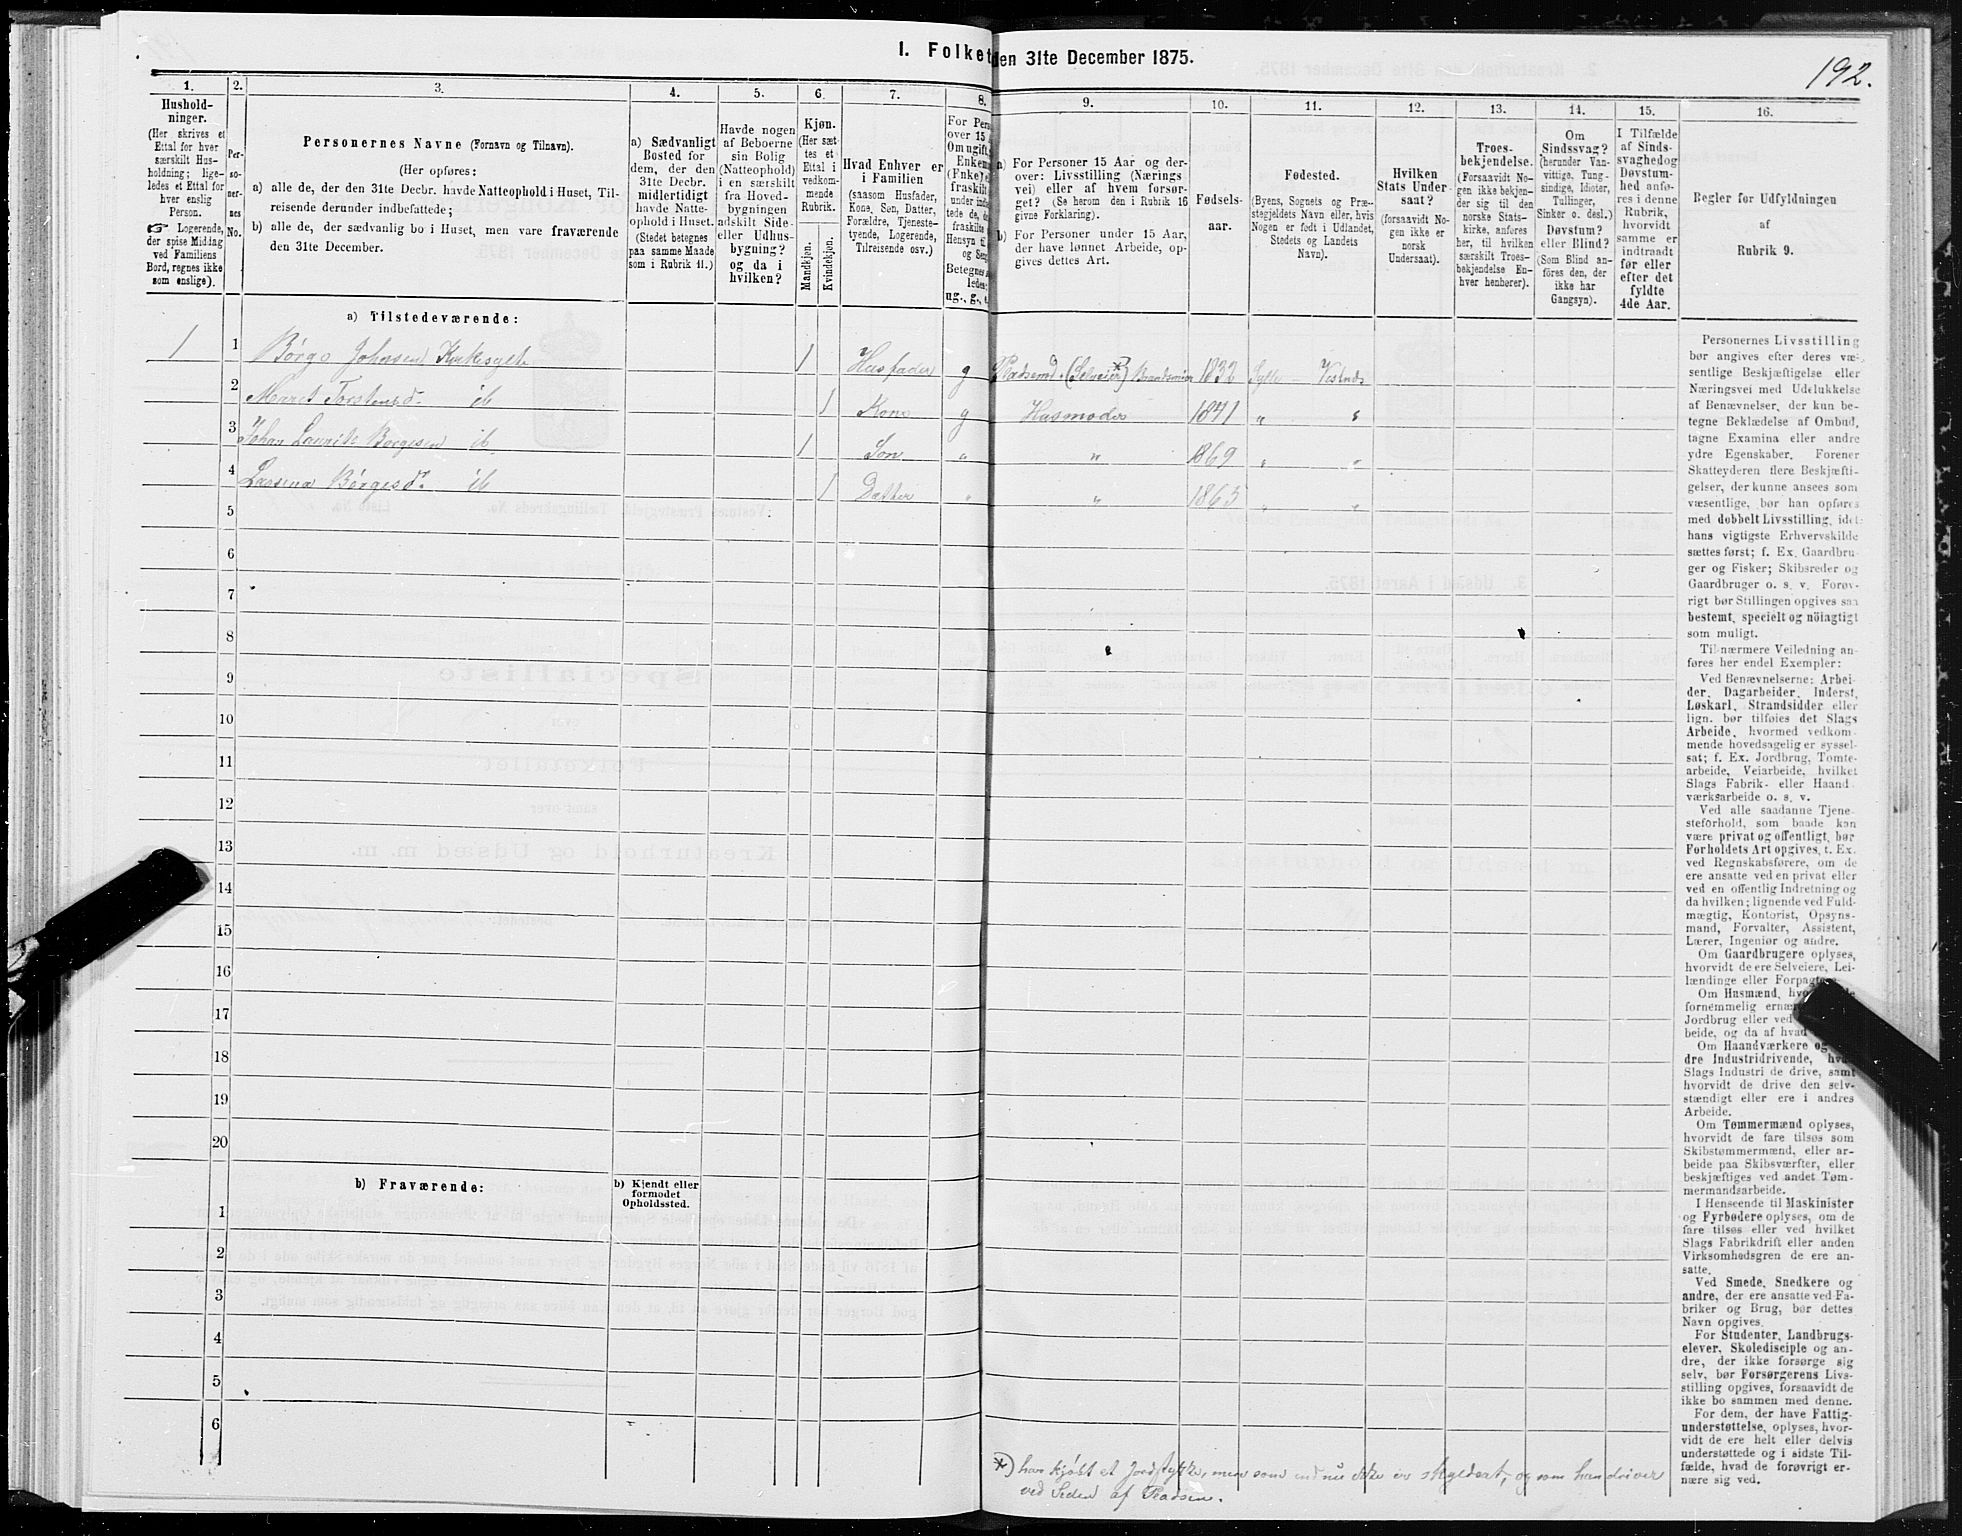 192.
I. Folket
den 31te December 1875.
1.
2.
3.
4.
5.
6.
7.
8.
9.
10.
11.
12.
13.
14.
15.
16.
Hushold-
ninger.
(Her skrives et
Ettal for hver
særskilt Hus-
holdning; lige-
ledes et Ettal for
hver enslig
Person.
☞ Logerende,
der spise Middag
ved Familiens
Bord, regnes ikke
som enslige).
Per-
so-
ner-
nes
No.
Personernes Navne (Fornavn og Tilnavn).
(Her opføres:
a) alle de, der den 31te Decbr. havde Natteophold i Huset, Til-
reisende derunder indbefattede;
b) alle de, der sædvanlig bo i Huset, men vare fraværende
den 31te December.
a) Sædvanligt
Bosted for
dem, der den
31te Decbr.
midlertidigt
havde Natte-
ophold i Huset.
(Stedet betegnes
paa samme Maade
som i Rubrik 11.)
Havde nogen
af Beboerne
sin Bolig
(Natteophold)
i en særskilt
fra Hoved-
bygningen
adskilt Side-
eller Udhus-
bygning?
og da i
hvilken?
Kjøn.
(Her sæt-
tes et
Ettal i
vedkom-
mende
Rubrik.
Mandkjøn.
Kvindekjøn.
Hvad Enhver er
i Familien
(saasom Husfader,
Kone, Søn, Datter,
Forældre, Tjeneste-
tyende, Logerende,
Tilreisende osv.)
For Pers
over 15
Om ugift,
Enkem
(Enke) e
fraskilt
under inds
tede de, d
fraskilt
Hensyn ti
og Sen
Betegnes s
ledes:
ug., g., e
a) For Personer 15 Aar og der-
over: Livsstilling (Nærings
vei) eller af hvem forsør-
get? (Se herom den i Rubrik 16
givne Forklaring).
b) For Personer under 15 Aar,
der have lønnet Arbeide, op-
gives dettes Art.
Fødsels-
aar.
Fødested.
(Byens, Sognets og Præ-
stegjeldets Navn eller, hvis
Nogen er født i Udlandet,
Stedets og Landets
Navn).
Hvilken
Stats Under-
saat?
(forsaavidt No-
gen ikke er
norsk
Undersaat).
Troes-
bekjendelse.
(Forsaavidt No-
gen ikke bekjen-
der sig til den
norske Stats-
kirke, anføres
her, til hvilken
særskilt Troes-
bekjendelse En-
hver henhører).
Om
Sindssvag?
(herunder Van-
vittige, Tung-
sindige, Idioter,
Tullinger,
Sinker o. desl.)
Døvstum?
eller Blind?
(Som Blind an-
føres den, der
ikke har
Gangsyn).
I Tilfælde
af Sinds-
svaghedog
Døvstum-
hed anfø-
res i denne
Rubrik,
hvorvidt
samme er
indtraadt
før eller
efter det
fyldte
4de Aar.
Regler for Udfyldningen
af
Rubrik 9.
a) Tilstedeværende:
1 1 Børge Johnsen Kirkesylte 1 Husfader g Pladsemd. (Selveier*) 1832 Sylte - Vestnæs
2 Maret Torstensd. ib 1 Kone g Husmoder 1841 " "
3 Johan Laurits Børgesen ib 1 Søn " " 1869 " "
4 Børgesd. ib 1 Datter " " 1865 " "
5
6
7
8
9
10
11
12
13
14
15
16
17
18
19
20
b) Fraværende:
b) Kjendt eller
formodet
Opholdssted.
1
2
3
4
5
6
*) har kjøbt et Jordstykke, men som endnu ikke er skyldsat, og som han driver
ved Siden af Pladsen.
Personernes Livsstilling
bør angives efter deres væ-
sentlige Beskjæftigelse eller
Næringsvei med Udelukkelse
af Benævnelser, der kun be-
tegne Beklædelse af Ombud,
tagne Examina eller andre
ydre Egenskaber. Forener
Skatteyderen flere Beskjæfti-
gelser, der kunne ansees som
væsentlige, bør han opføres
med dobbelt Livsstilling, idet
hans vigtigste Erhvervskilde
sættes først; f. Ex. Gaardbru-
ger og Fisker; Skibsreder og
Gaardbruger o. s. v. Forøv-
rigt bør Stillingen opgives saa
bestemt, specielt og nöiagtigt
som muligt.
Til nærmere Veiledning an-
føres her endel Exempler:
Ved Benævnelserne: Arbei-
der, Dagarbeider, Inderst,
Løskarl, Strandsidder eller
lign. bør tilføies det Slags
Arbeide, hvormed vedkom-
mende hovedsagelig er syssel-
sat; f. Ex. Jordbrug, Tomte-
arbeide, Veiarbeide, hvilket
Slags Fabrik- eller Haand
værksarbeide o. s. v.
Ved alle saadanne Tjene-
steforhold, som baade kan
være privat og offentligt, bør
Forholdets Art opgives, t. Ex.
ved Regnskabsførere, om de
ere ansatte ved en privat eller
ved en offentlig Indretning og
da hvilken; lignende ved Fuld-
mægtig, Kontorist, Opsyns-
mand, Forvalter, Assistent,
Lærer, Ingeniør og andre.
Om Gaardbrugere oplyses,
hvorvidt de ere Selveiere, Lei-
lændinge eller Forpagtere.
Om Husmænd, hvo
fornemmelig ernæ
Jordbrug eller ved
beide, og da af hvad
Om Haandværkere og
dre Industridrivende, hva
Slags Industri de drive, samt
hvorvidt de drive den selv-
stændigt eller ere i andres
Arbeide.
Om Tømmermænd oplyses,
hvorvidt de fare tilsøs som
Skibstømmermænd, eller ar-
beide paa Skibsværfter, eller
beskjæftiges ved andet Tøm-
mermandsarbeide.
I Henseende til Maskinister
og Fyrbødere oplyses, om de
fare tilsøs eller ved hvilket
Slags Fabrikdrift eller anden
Virksomhedsgren de ere an-
satte.
Ved Smede, Snedkere og
andre, der ere ansatte ved Fa-
briker og Brug, bør dettes
Navn opgives.
For Studenter, Landbrugs-
elever, Skoledisciple og an-
dre, der ikke forsørge sig
selv, bør Forsørgerens Livs-
stilling opgives, forsaavidt de
ikke bo sammen med denne.
For dem, der have Fattig-
understøttelse, oplyses, hvor-
vidt de ere helt eller delvis
understøttede og i sidste Til-
fælde, hvad de forøvrigt er-
nære sig ved.